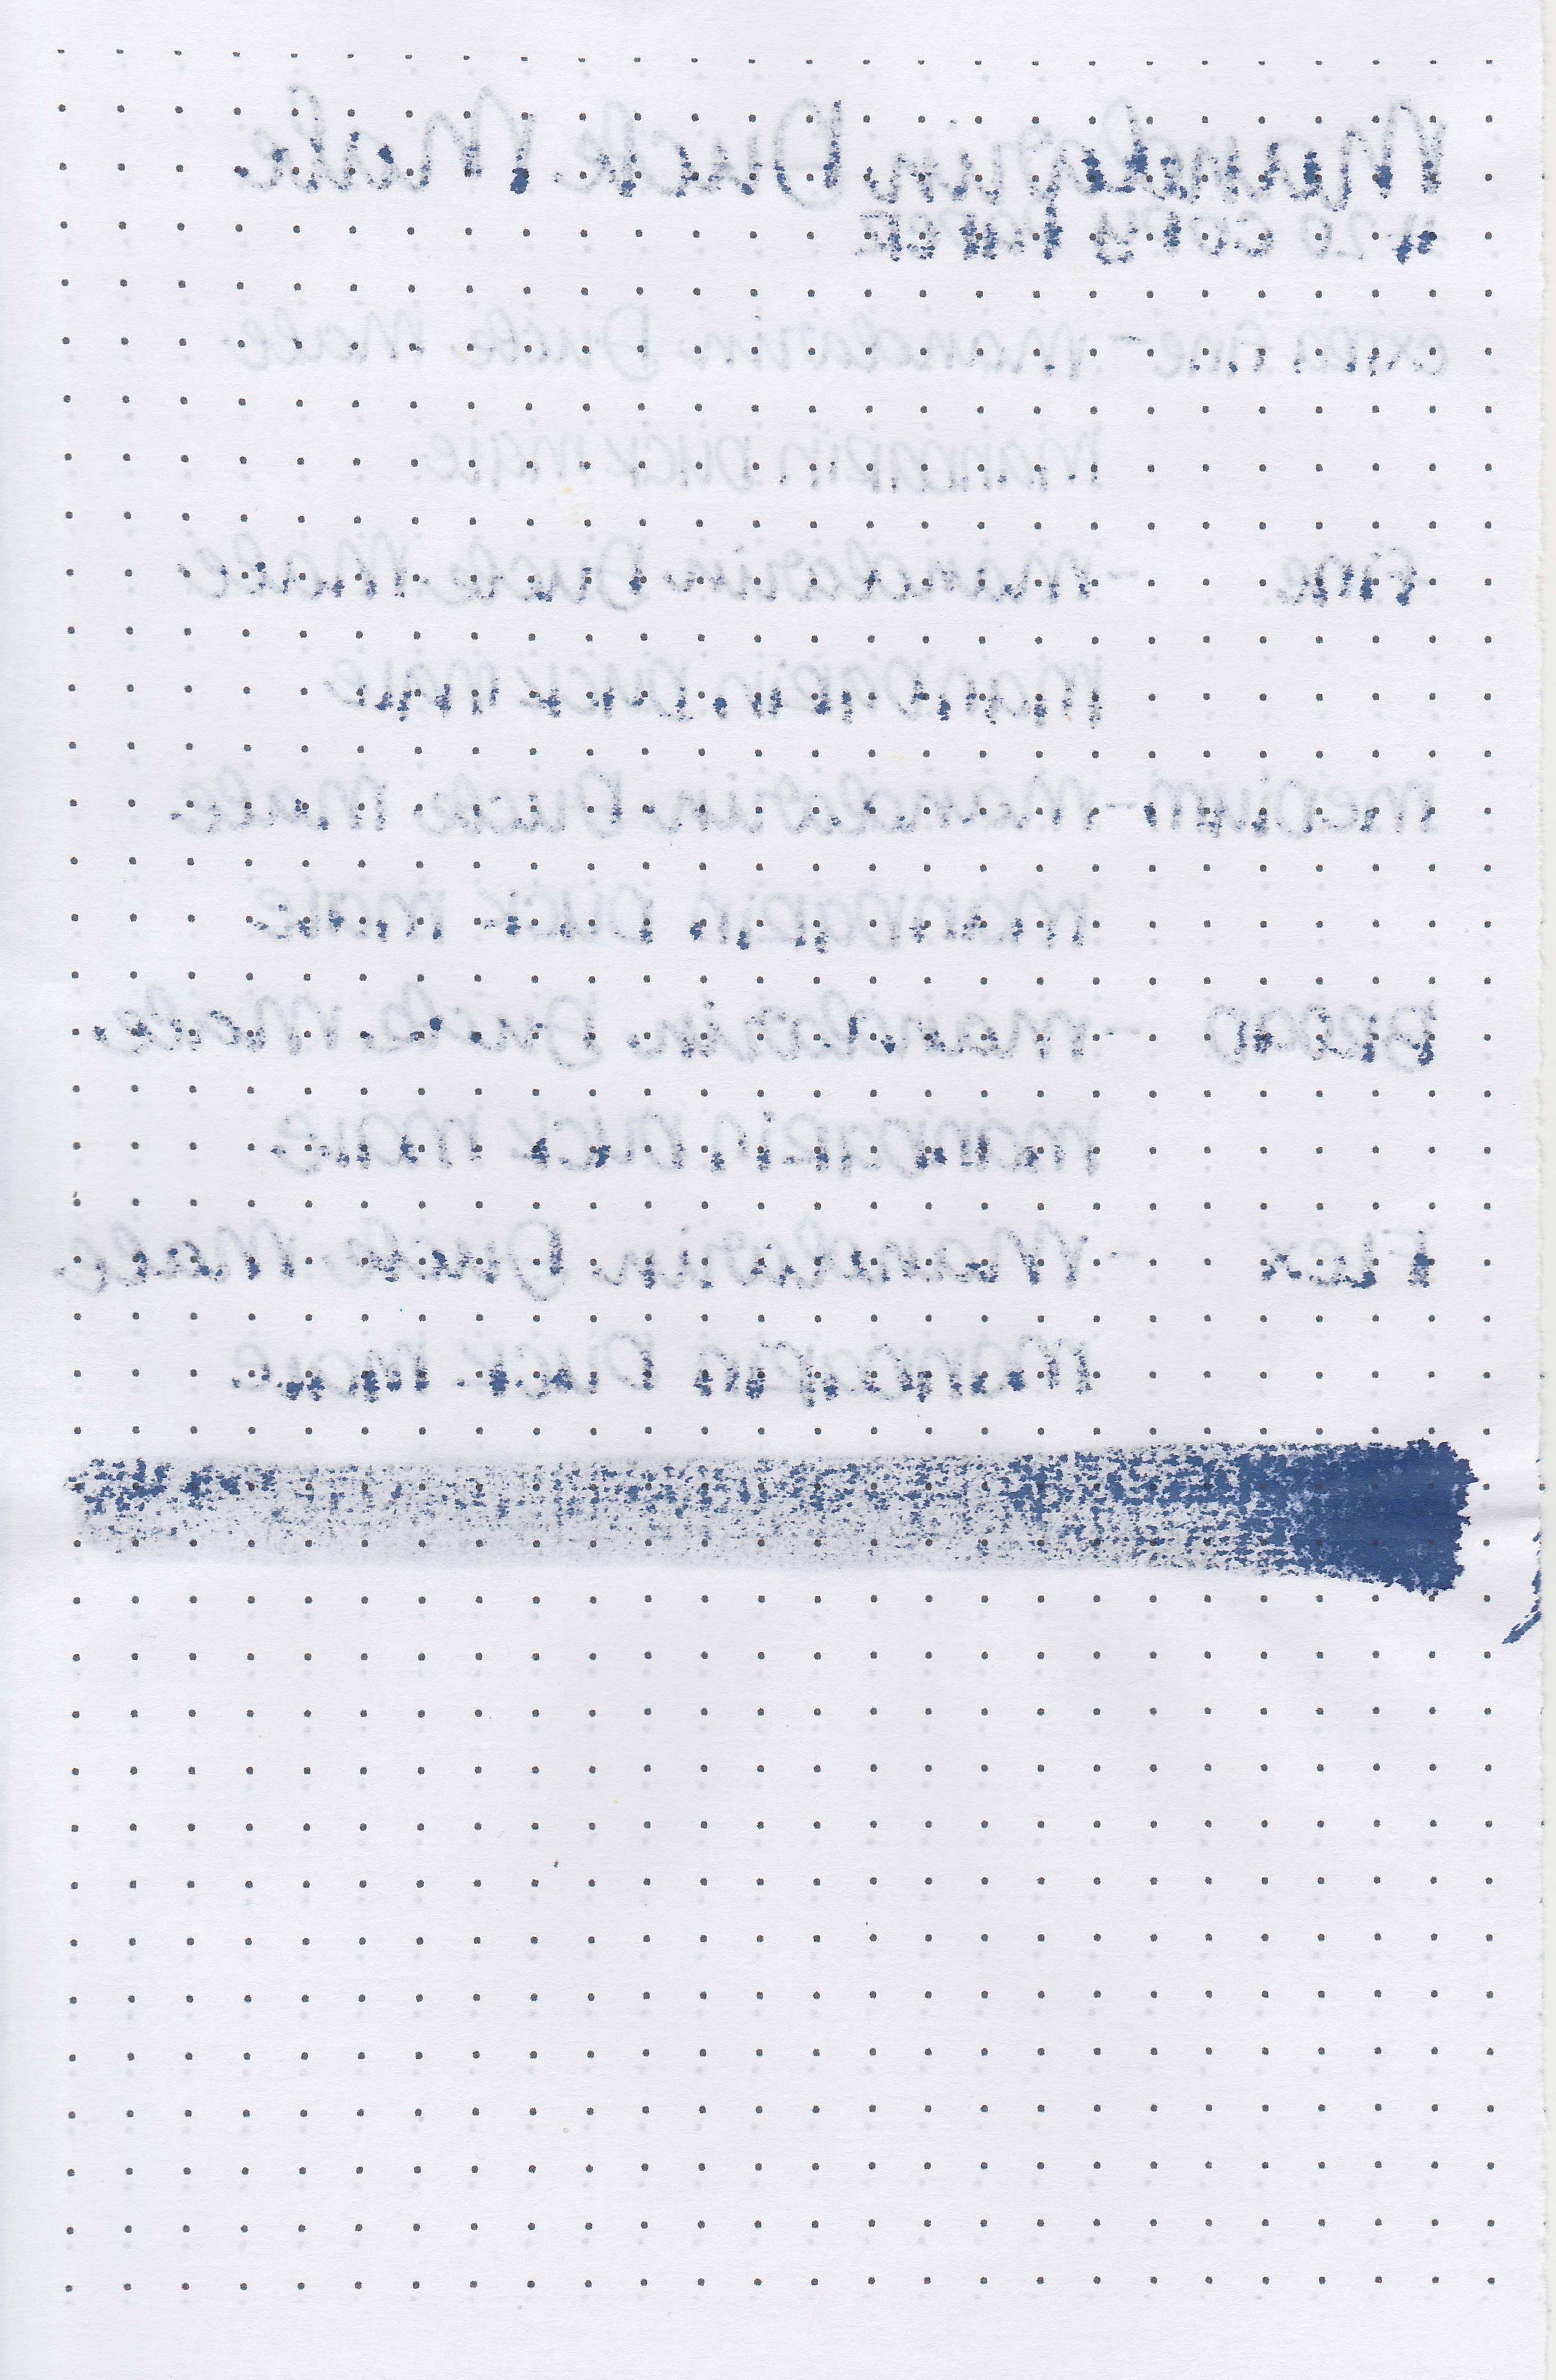 Mandarin Duck Male
#20 COPY PAPER
extra fine - Mandarin Duck Male
Mandarin Duck Male
Fine - Mandarin Duck Male
Mandarin Duck Male
Medium - Mandarin Duck Male
Mandarin Duck Male
Broad - Mandarin Duck Male
Mandarin Duck Male
Flex - Mandarin Duck Male
Mandarin Duck Male